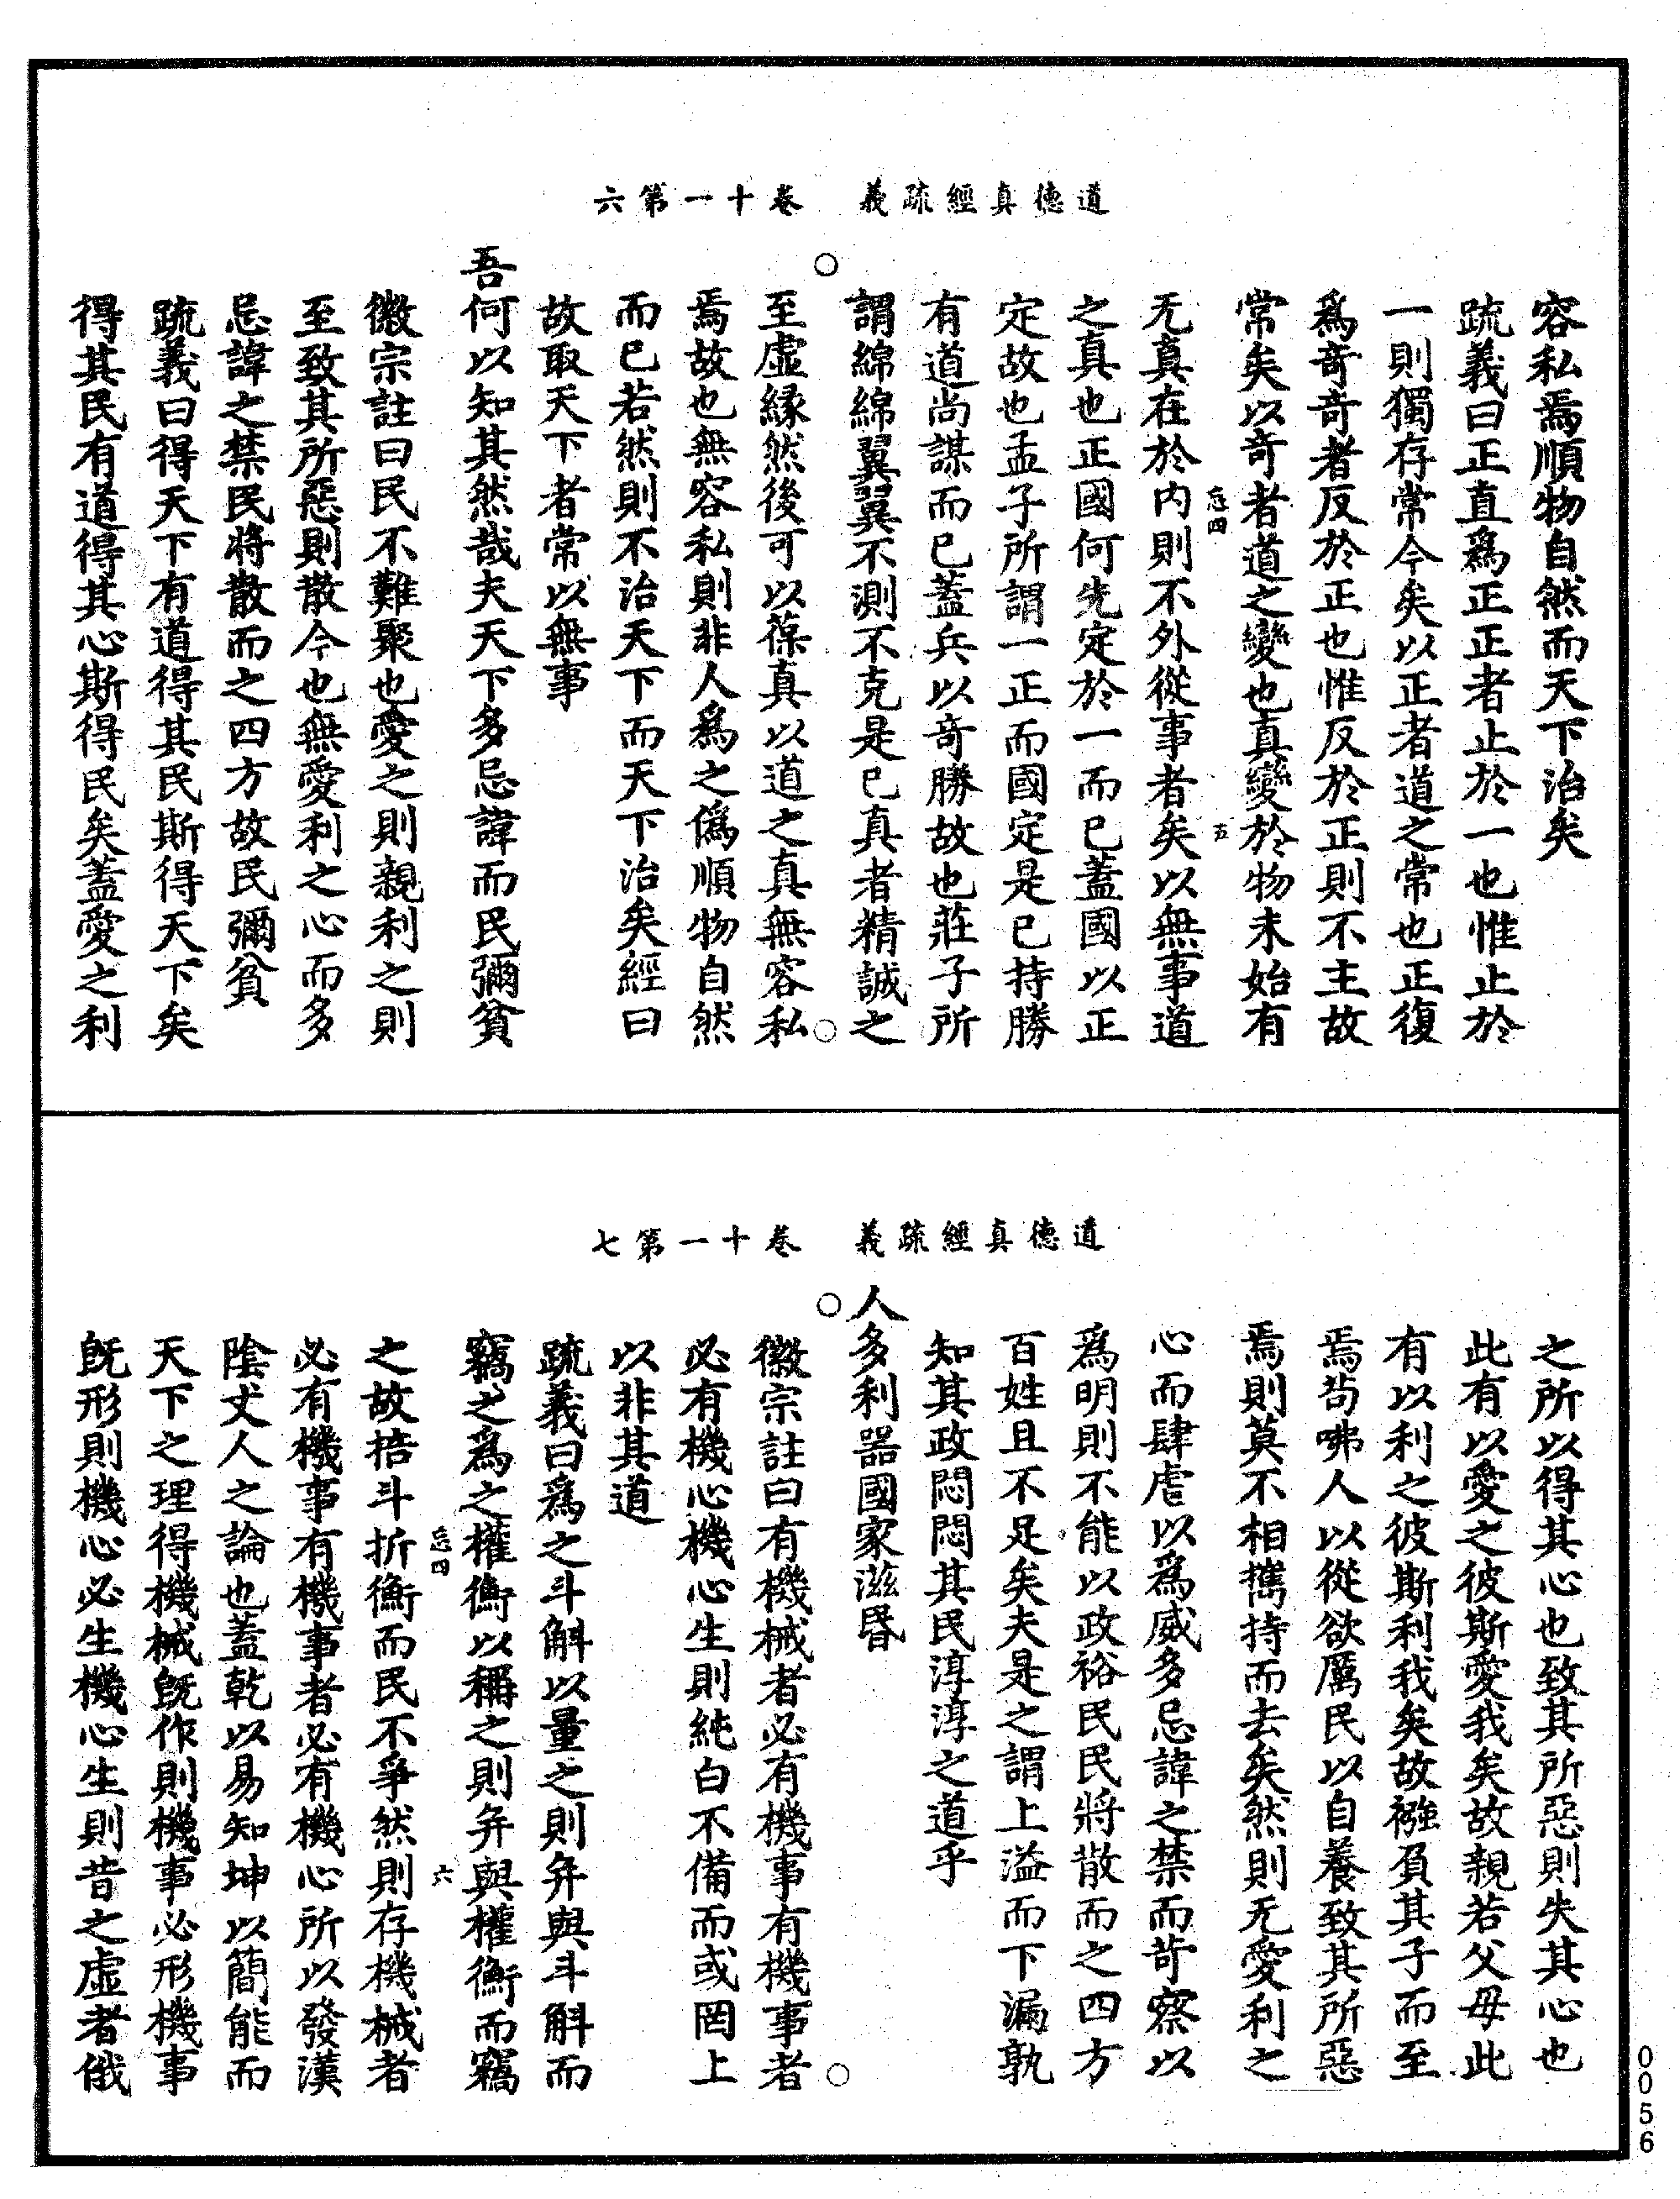 道德真經疏義　卷十一第六
容私焉順物自然而天下治矣
疏義曰正直爲正正者止於一也惟止於
一則獨存常今矣以正者道之常也正復
爲奇奇者反於正也惟反於正則不主故
常矣以奇者道之變也真變於物未始有
忘四　五
无真在於内則不外從事者矣以無事道
之真也正國何先定於一而已蓋國以正
定故也孟子所謂一正而國定是已持勝
有道尚謀而已蓋兵以奇勝故也莊子所
謂綿綿翼翼不測不克是已真者精誠之
至虛緣然後可以葆真以道之真無容私
焉故也無容私則非人爲之僞順物自然
而已若然則不治天下而天下治矣經曰
故取天下者常以無事
吾何以知其然哉夫天下多忌諱而民彌貧
徽宗註曰民不難聚也愛之則親利之則
至致其所惡則散今也無愛利之心而多
忌諱之禁民將散而之四方故民彌貧
疏義曰得天下有道得其民斯得天下矣
得其民有道得其心斯得民矣蓋愛之利
道德真經疏義　卷十一第七
之所以得其心也致其所惡則失其心也
此有以愛之彼斯愛我矣故親若父母此
有以利之彼斯利我矣故襁負其子而至
焉茍咈人以從欲厲民以自養致其所惡
焉則莫不相攜持而去矣然則无愛利之
心而肆虐以爲威多忌諱之禁而苛察以
爲明則不能以政裕民民將散而之四方
百姓且不足矣夫是之謂上溢而下漏孰
知其政悶悶其民淳淳之道乎
人多利器國家滋昬
徽宗註曰有機械者必有機事有機事者
必有機心機心生則純白不備而或罔上
以非其道
疏義曰爲之斗斛以量之則弁與斗斛而
竊之爲之權衡以稱之則弁與權衡而竊
忘四　六
之故掊斗折衡而民不爭然則存機械者
必有機事有機事者必有機心所以發漢
陰丈人之論也蓋乾以易知坤以簡能而
天下之理得機械旣作則機事必形機事
旣形則機心必生機心生則昔之虛者俄
0056